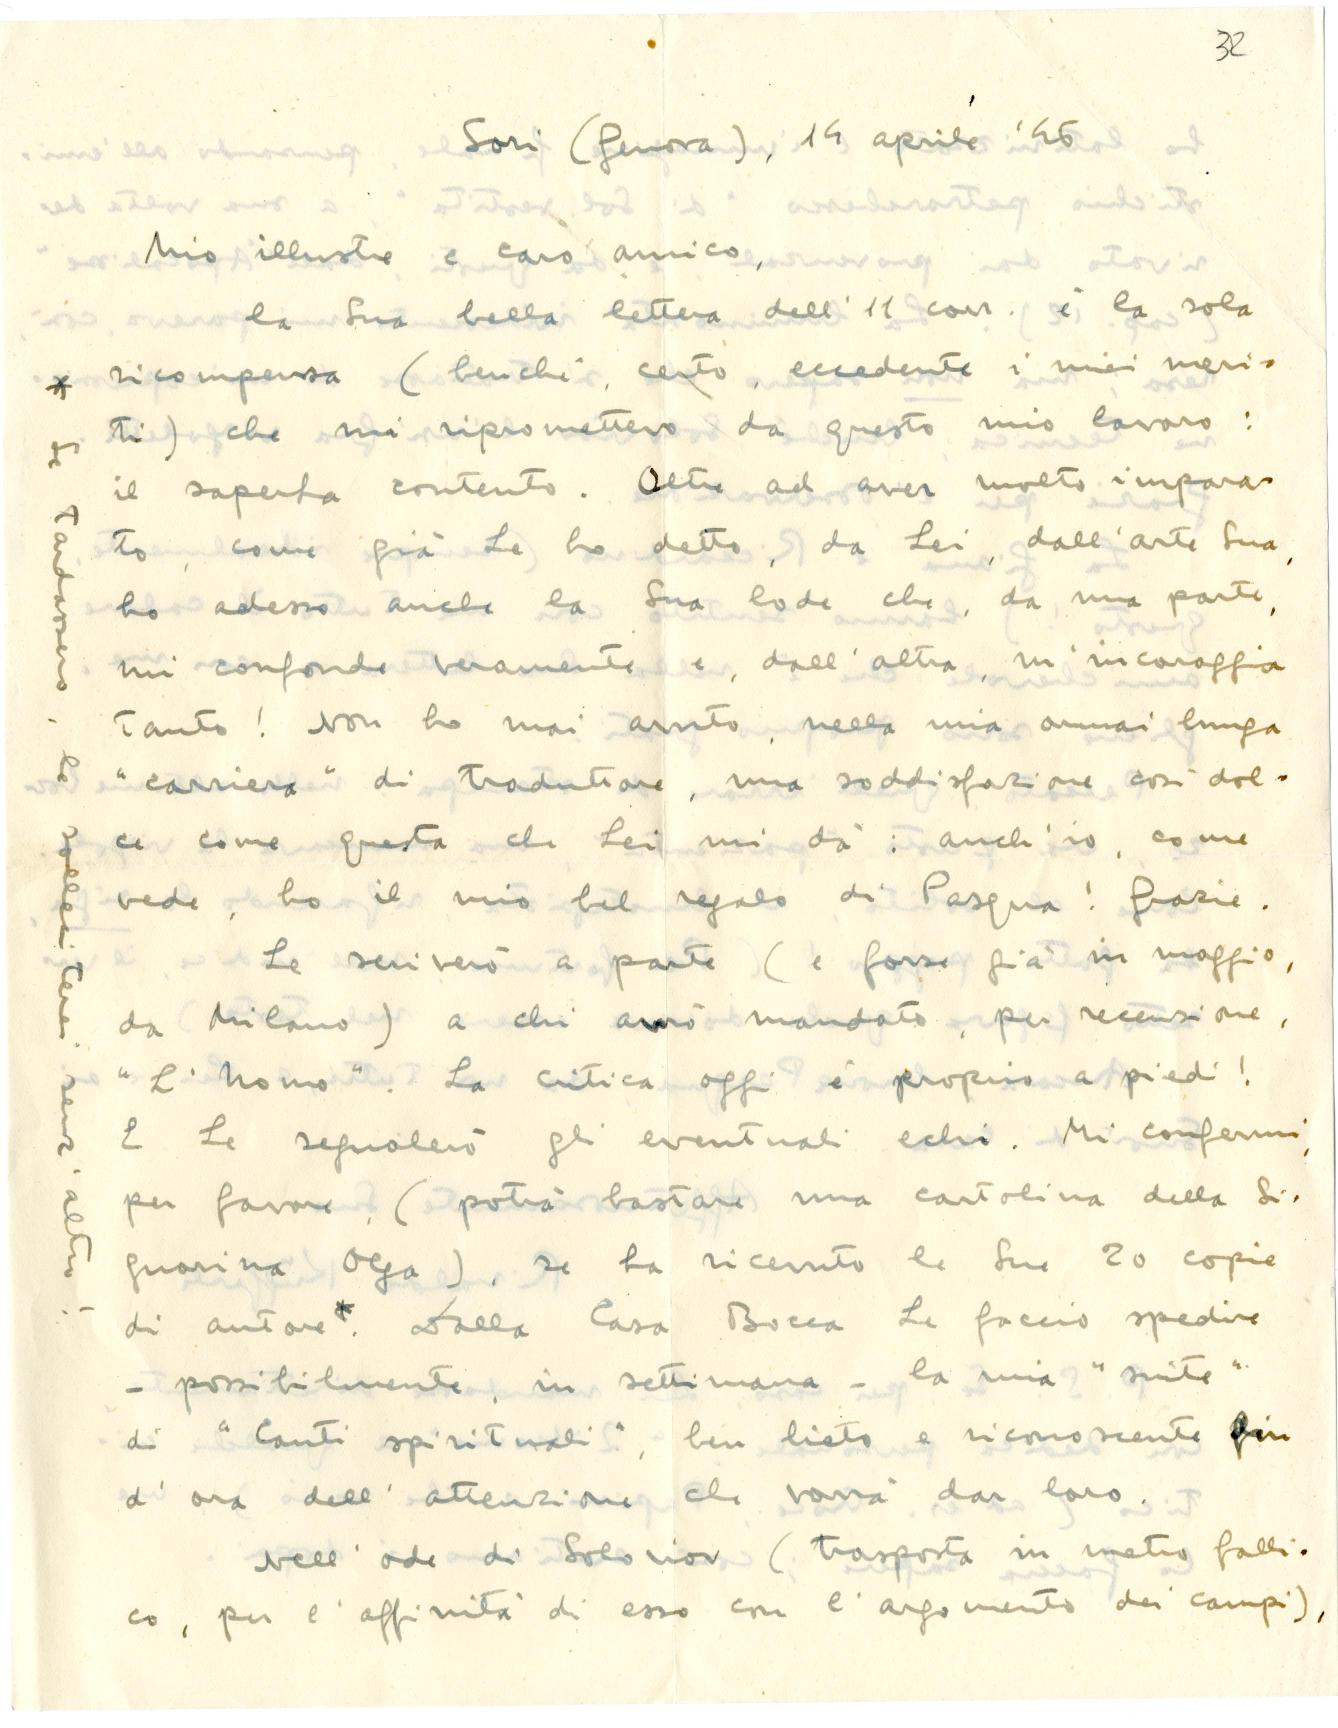 32
Sori (Genova), 14 aprile '46
Mio illustre e caro amico,
la Sua bella lettera dell'11 corr. è la sola
ricompensa (benché, certo, eccedente i miei meri-
ti) che mi ripromettevo da questo mio lavoro:
il saperLa contento. Oltre ad aver molto impara-
to, come già Le ho detto, da Lei, dall'arte Sua,
ho adesso anche la Sua lode che, da una parte,
mi confonde veramente e, dall'altra, m'incoraggia
tanto! Non ho mai avuto, nella mia ormai lunga
"carriera" di traduttore, una soddisfazione così dol-
ce come questa che Lei mi dà: anch'io, come
vede, ho il mio bel regalo di Pasqua! Grazie.
Le scriverò a parte (e forse già in maggio,
da Milano) a chi avrò mandato, per recensione,
"L'Uomo". La critica oggi è proprio a piedi!
E Le segnalerò gli eventuali echi. Mi confermi,
per favore, (potrà bastare una cartolina della Si-
gnorina Olga), se ha ricevuto le Sue 20 copie
di autore*. Dalla Casa Bocca Le faccio spedire
- possibilmente, in settimana - la mia "suite"
di "Canti spirituali", ben lieto e riconoscente fin
d'ora dell'attenzione che vorrà dar loro.
Nell'ode di Soloviov (trasposta in metro galli-
co, per l'affinità di esso con l'argomento dei campi),
* Se tardassero, le solleciterei senz'altro!